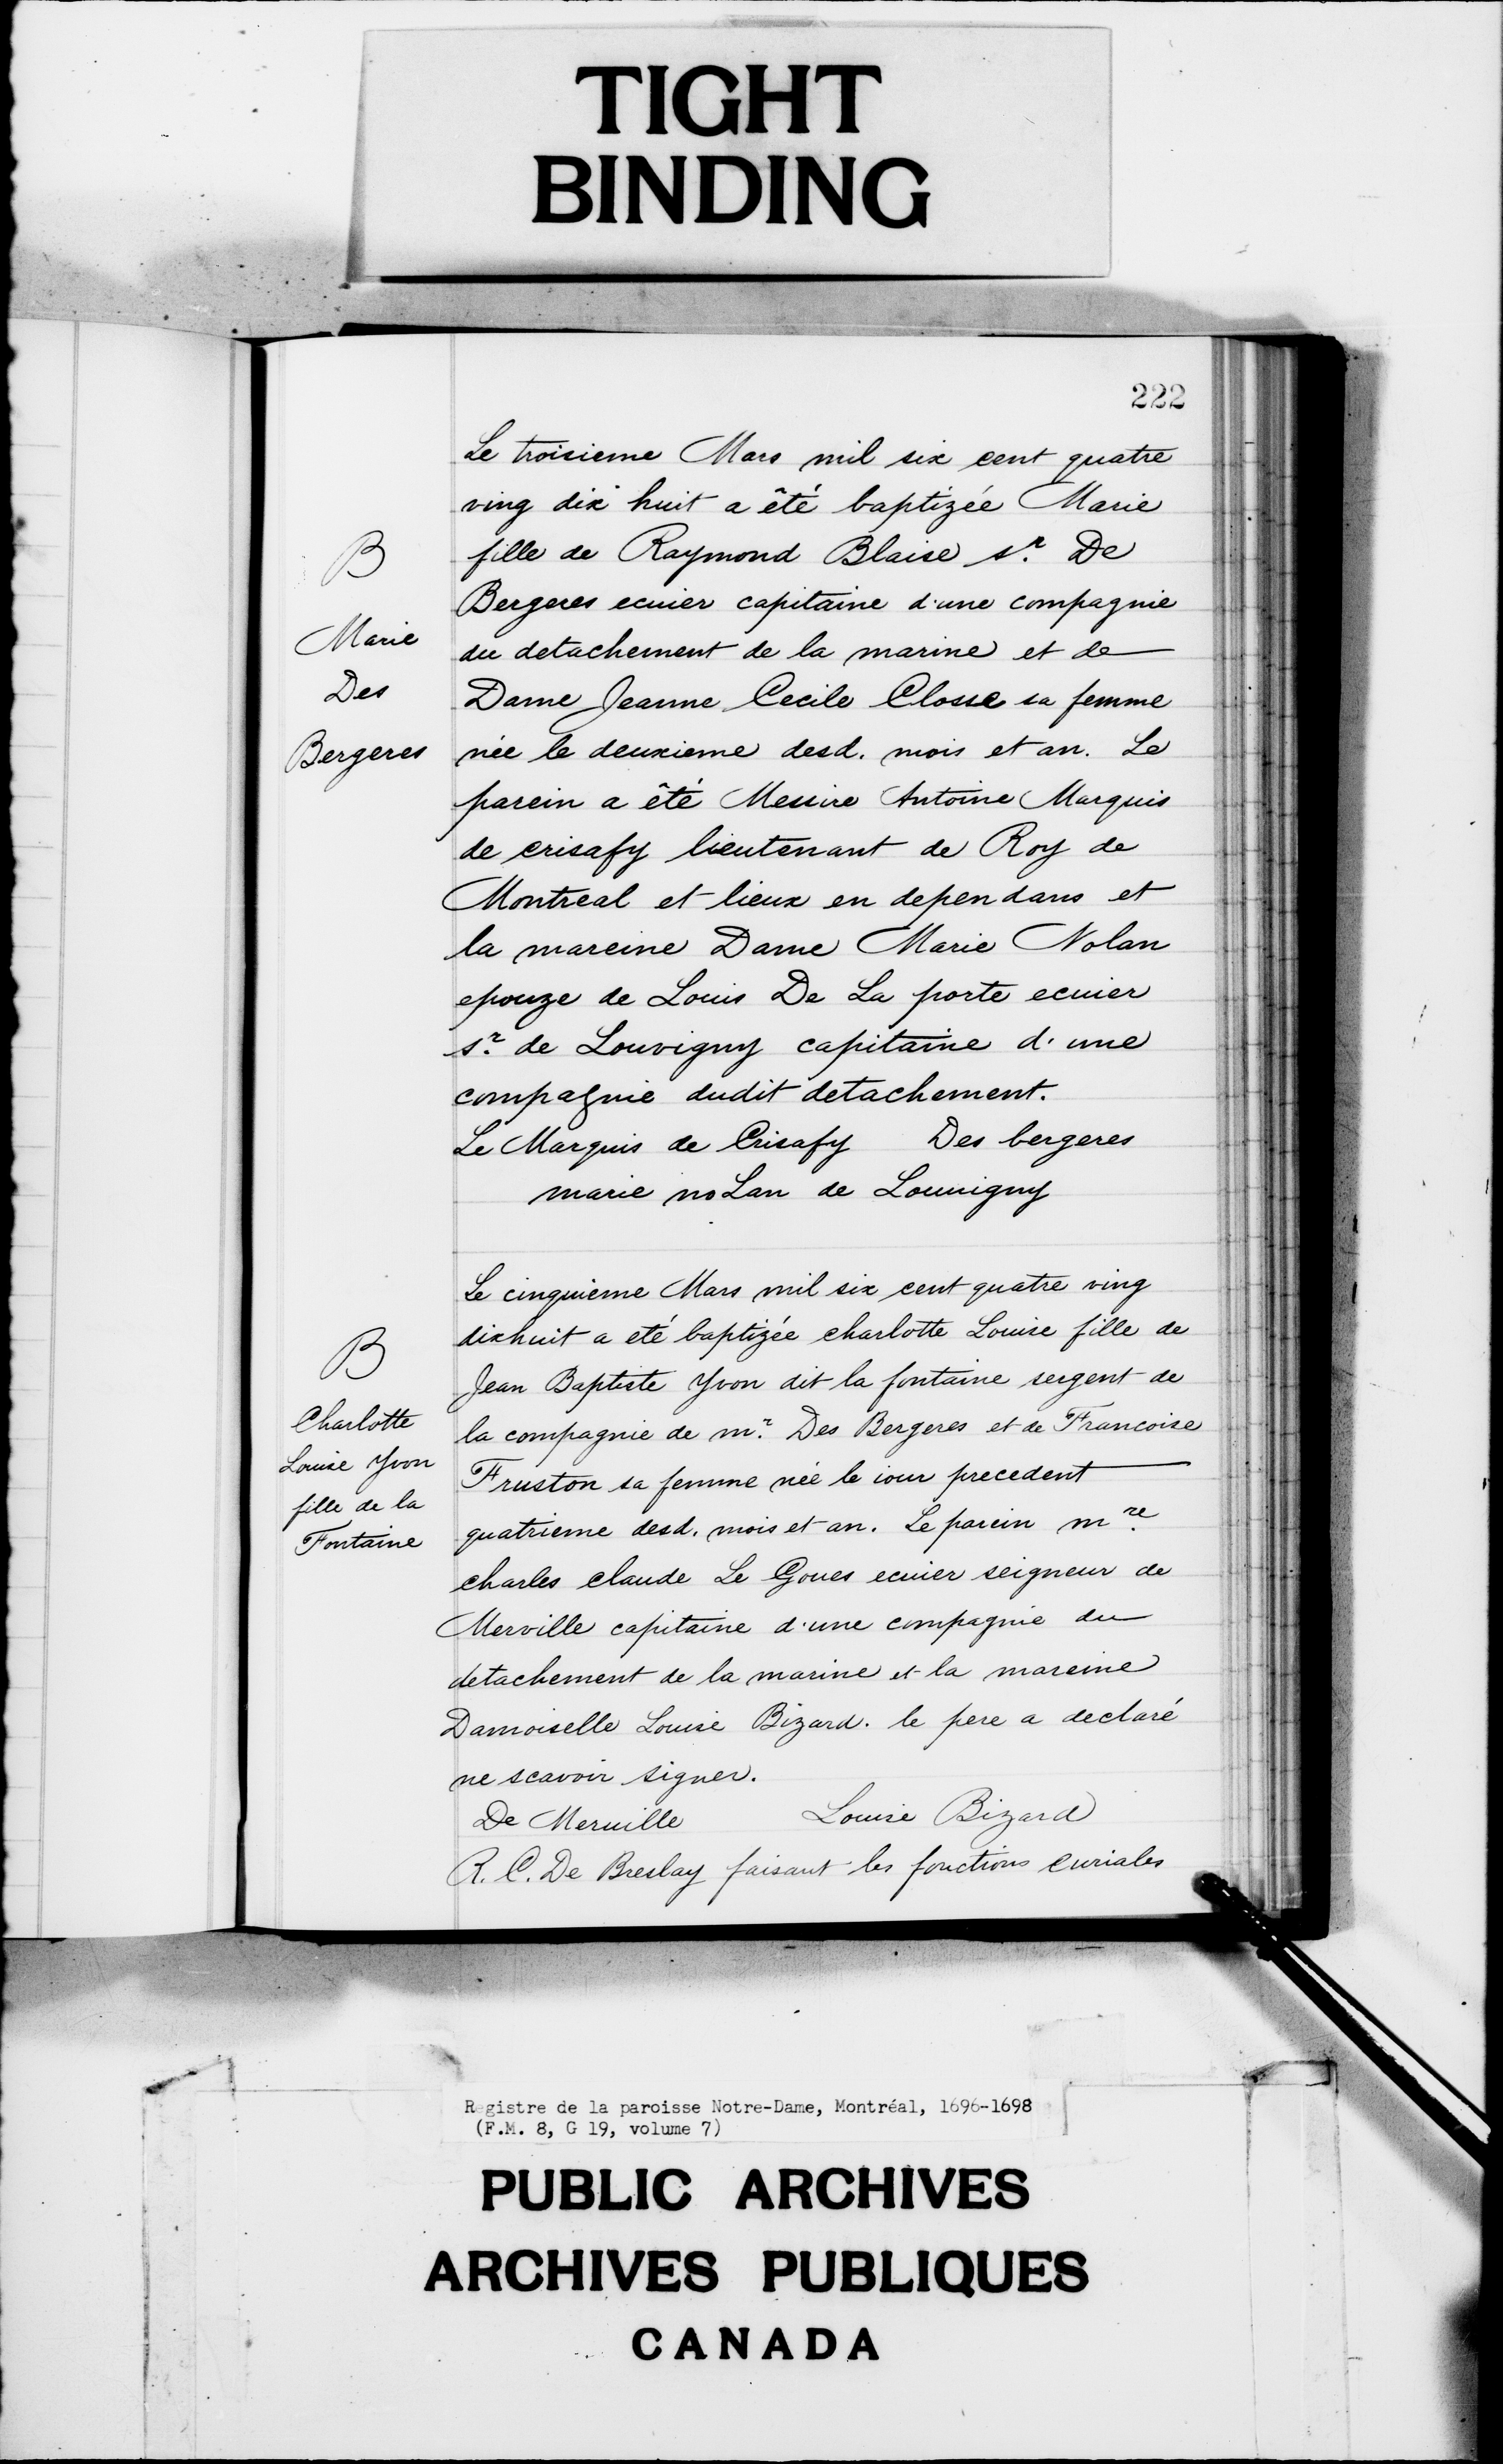 TIGHT
BINDING
222
Le troisieme Mars mil six cent quatre
ving dix huit a êté baptizée Marie
B
fille de Raymond Blaise sr. De
Bergeres ecuier capitaine d'une compagnie
Marie
du detachement de la marine et de
Des
Dame Jeanne Cecile Closse sa femme
Bergeres
née le deuxieme desd. mois et an. Le
parein a êté Messire Antoine Marquis
de crisafy lieutenant de Roy de
Montreal et lieux en dependans et
la mareine Dame Marie Nolan
epouze de Louis De La porte ecuier
sr. de Louvigny capitaine d'une
compagnie dudit detachement.
Le Marquis de Crisafy Des bergeres
marie noLan de Louuigny
Le cinquieme Mars mil six cent quatre ving
B
dixhuit a eté baptizée charlotte Louise fille de
Jean Baptiste Yvon dit la fontaine sergent de
Charlotte
la compagnie de mr. Des Bergeres et de Francoise
Louise Yvon
Fruston sa femme née le iour precedent
fille de la
Fontaine
quatrieme desd. mois et an. Le parein mre
charles claude Le Goues ecuier seigneur de
Merville capitaine d'une compagnie du
detachement de la marine et la mareine
Damoiselle Louise Bizard. le pere a declaré
ne scavoir signer.
De Meruille Louise Bizard
R. C. De Breslay faisant les fonctions curiales
Registre de la paroisse Notre-Dame, Montréal, 1696-1698
(F.M. 8, G 19, volume 7)
PUBLIC ARCHIVES
ARCHIVES PUBLIQUES
CANADA